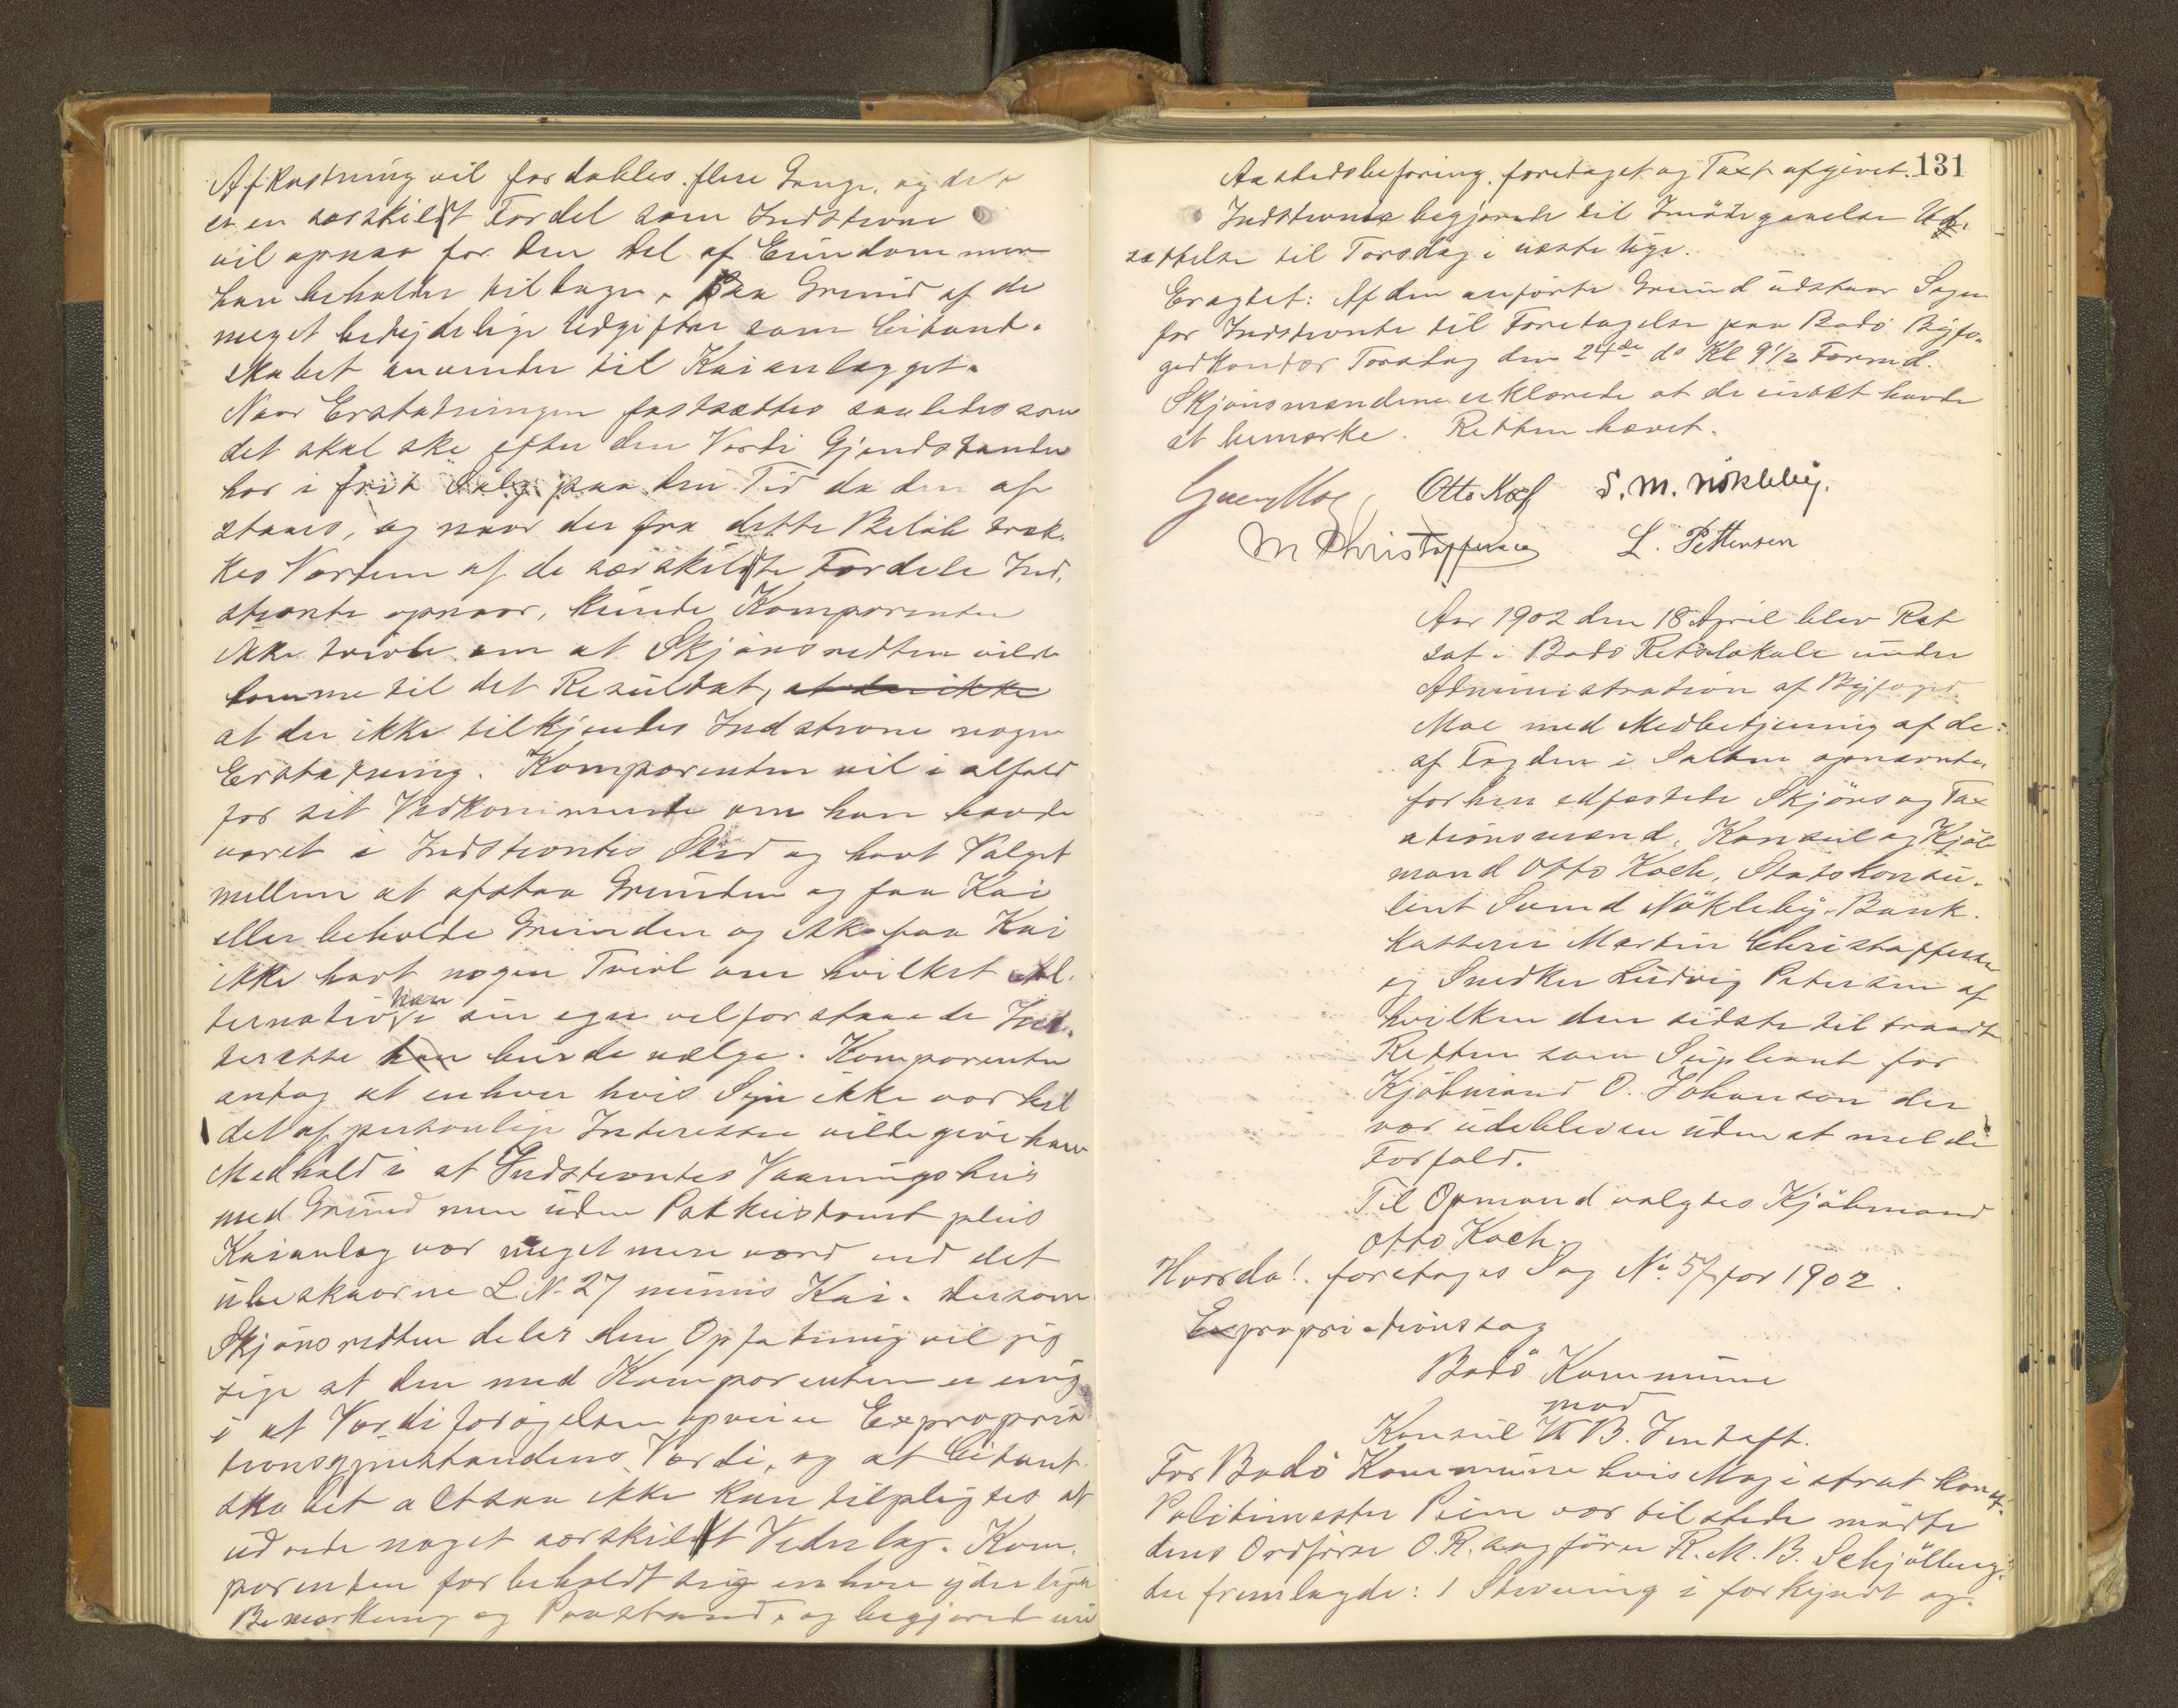 Afkastning vil fordobles flere Gange, og dette
er en særskilt Fordel som Indstevne
vil opnaa for den Del af Eiendommen
han beholder tilbage, Paa Grund af de
meget betydelige Udgifter som Citant-
skabet anvender til Kaianlægget.
Naar Erstatningen fastsættes saaledes som
det skal ske efter den Værdi Gjenstanden
har i frit Salg paa den Tid da den af
staaes, og naar der fra dette Beløb træk-
kes Værdien af de særskilte Fordele Ind-
stevnte opnaar, kunde Komparenten
ikke tvivle om at Skjønsretten vilde
komme til det Resultat, at der ikke
at der ikke tilkjendes Indstevne nogen
Erstatning. Komparenten vil i alfald
for sit Vedkommende om han havde
været i Indstevntes Sted og havt Valget
mellem at afstaa Grunden og faa Kai
eller beholde Grunden og ikke faa Kai
ikke havt nogen Tvivl om hvilket Al-
ternativ han i sin egen velforstaaede Int-
teresse han burde vælge. Komparenten
antog at enhver hvis Syn ikke var hil
det af personlige Interesser vilde give ham
Medhold i at Indstevntes Vaaningshus
med Grund men uden Pakhustomt plus
Kaianlæg var meget mere værd end det
ubeskaarne L.N. 27 minus Kai. Dersom
Skjønsretten deler den Opfatning vil sig
sige at den med Komparenten er enig
i at Værdiforøgelsen opveier Expropria
tionsgjenstandens Værdi, og at Citant-
skabet altsaa ikke kan tilpligtes at
udrede noget særskilt Vederlag. Kom-
parenten forbeholdt sig enhver yderligere
Bemærkning og Paastand, og begjæret
Aastedsbefaring foretaget og Taxt afgivet. 131
Indstevnte begjærede til Imødegaaelse Ud-
sættelse til Torsdag i næste Uge.
Eragtet: Af den anførte Grund udstaar Sagen
for Indstevnte til Foretagelse paa Bodø Byfo-
gedkontor Torsdag den 24de ds Kl 9½ Formd.
Skjønsmændene erklærede at de intet havde
at bemærke. Retten hævet.
Moe, Otto Koch S. M. Nøkleby.
M Christoffersen L. Pettersen
Aar 1902 den 18 April blev Ret
sat i Bodø Retslokale under
Administration af Byfoged
Moe med Medbetjening af de
af Fogden i Salten opnævnte
forhen edfæstede Skjøns og Tax
ationsmænd, Konsul og Kjøb
mand Otto Koch, Statskonsu-
lent Sevend Nökleby. Bank-
kasserer Martin Christoffersen
og Snedker Ludvig Petersen af
hvilken den sidste tiltraadte
Retten som Supleant for
Kjøbmand O. Johansen der
var udebleven uden at melde
Forfald.
Til Opmand valgtes Kjøbmand
Otto Koch.
Hvorda! foretages Sag No 57 for 1902.
Expropriationssag
Bodö Kommune
mod
Konsul W B. Jentoft.
For Bodö Kommune hvis Magistrat konst.
Politimester var tilstede mödte
dens Ordfører O.R.sagförer R. M. B. Schjölberg
der fremlagde: 1 Stevning i forkyndt og